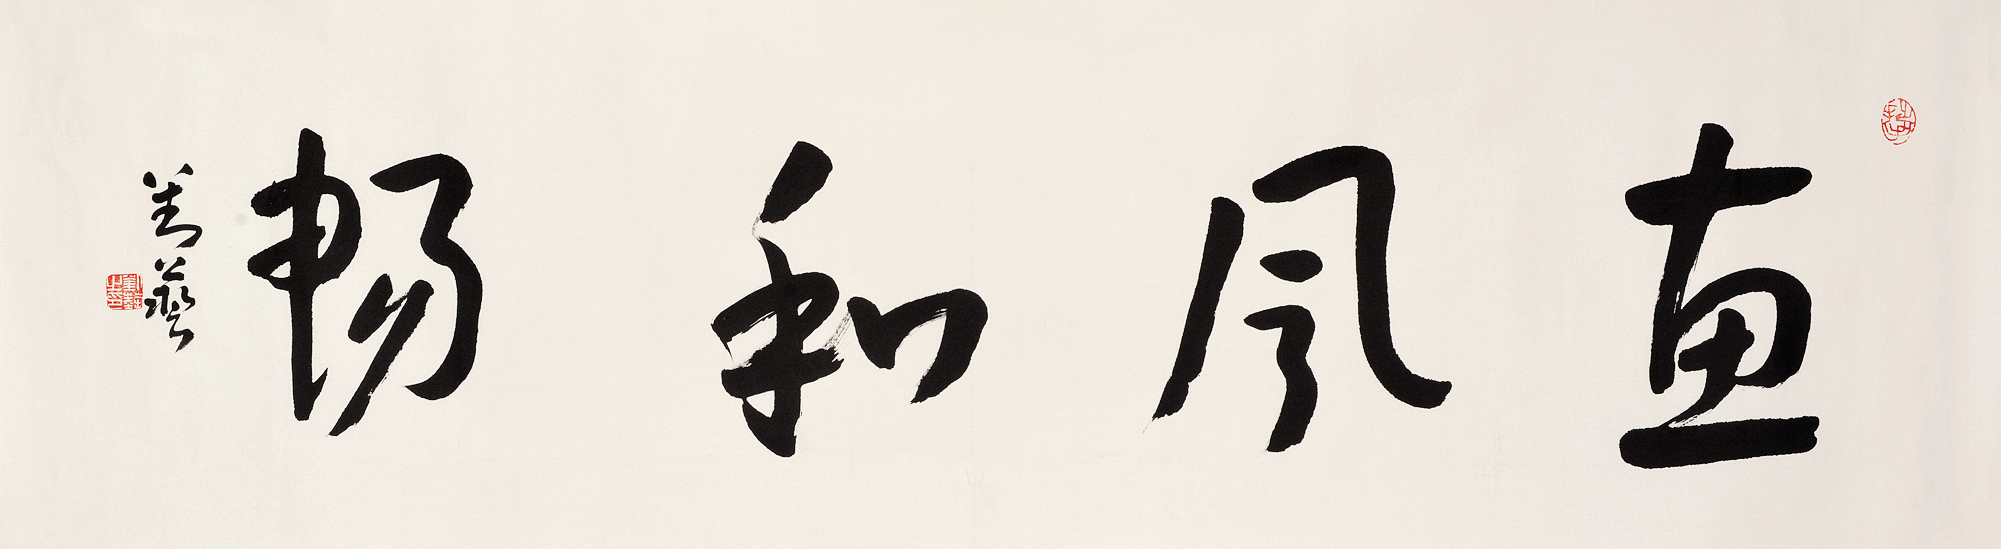 惠风和畅